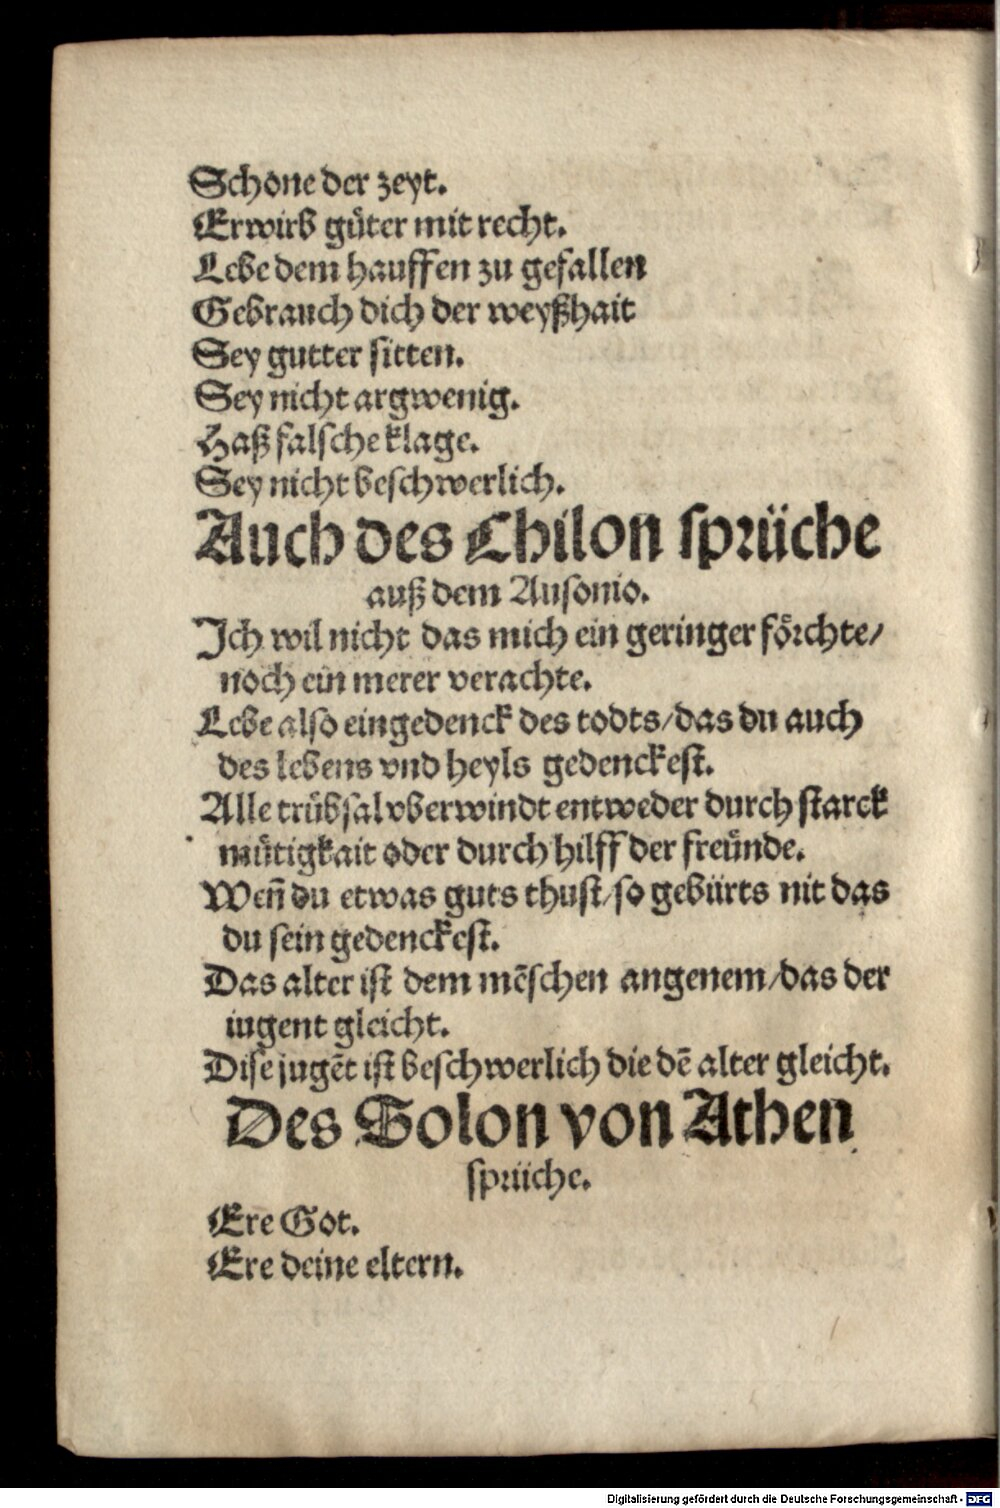 Schone der zeyt.
Erwirb güter mit recht.
Lebe dem hauffen zu gefallen
Gebrauch dich der weyßhait
Sey gutter sitten.
Sey nicht argwenig.
Haß falsche klage.
Sey nicht beschwerlich.
Auch des Chilon sprüche
auß dem Ausonio.
Ich wil nicht das mich ein geringer förchte/
noch ein merer verachte.
Lebe also eingedenck des todts/das du auch
des lebens vnd heyls gedenckest.
Alle trübsal vberwindt entweder durch starck
mütigkait oder durch hilff der freünde.
Wen̄ du etwas guts thust/so gebürts nit das
du sein gedenckest.
Das alter ist dem mēschen angenem/das der
iugent gleicht.
Dise jugēt ist beschwerlich die dē alter gleicht.
Des Solon von Athen
sprüche.
Ere Got.
Ere deine eltern.
Digitalisierung gefördert durch die Deutsche Forschungsgemeinschaft - DFG